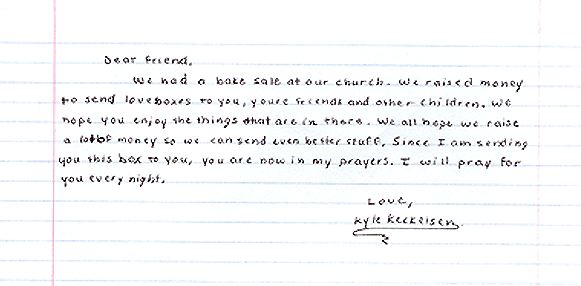 Dear friend,
We had a bake sale at our church. We raised money
to send loveboxes to you, youre friends and other children. We
hope you enjoy the things that are in there. We all hope we raise
a lot of money so we can send even better stuff. Since I am sending
you this box to you, you are now in my prayers. I will pray for
you every night.
Love,
Kyle Keckeisen